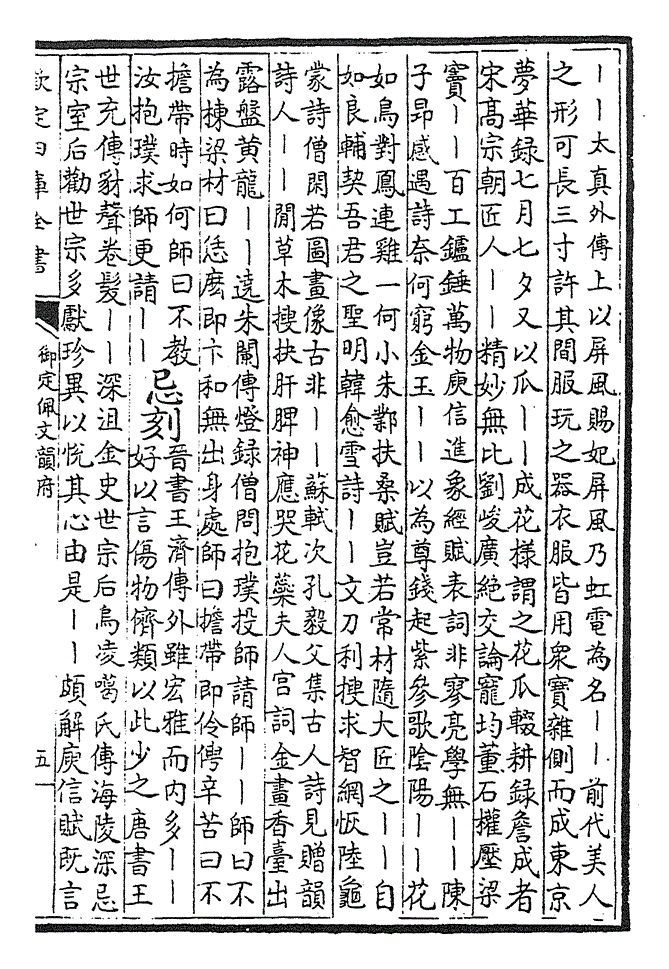 ｜｜太真外傳上以屏風賜妃屏風乃虹霓為名｜｜前代美人
之形可長三寸許其間服玩之器衣服皆用衆寶雜側而成東京
夢華録七月七夕又以瓜｜｜成花様謂之花瓜輟耕録詹成者
宋髙宗朝匠人｜｜精妙無比劉峻廣絶交論寵均董石權壓梁
竇｜｜百工鑪錘萬物庾信進象經賦表詞非寥亮學無｜｜陳
子昻感遇詩奈何窮金玉｜｜以為尊錢起紫參歌陰陽｜｜花
如鳥對鳳連雞一何小朱鄴扶桑賦豈若常材隨大匠之｜｜自
如良輔契吾君之聖明韓愈雪詩｜｜文刀利搜求智網恢陸龜
蒙詩僧閑若圖畫像古非｜｜蘇軾次孔毅父集古人詩見贈韻
詩人｜｜閒草木搜抉肝脾神應哭花蘂夫人宫詞金畫香臺出
露盤黄龍｜｜遶朱闌傳燈録僧問抱璞投師請師｜｜師曰不
為棟梁材曰恁麽即卞和無出身處師曰擔帶即伶俜辛苦曰不
擔帶時如何師曰不教
汝抱璞求師更請｜｜
忌刻
晉書王濟傳外雖宏雅而内多｜｜
好以言傷物儕類以此少之唐書王
世充傳豺聲卷髪｜｜深沮金史世宗后烏凌噶氏傳海陵深忌
宗室后勸世宗多獻珍異以悦其心由是｜｜頗解庾信賦既言
欽定四庫全書
御定佩文韻府
五